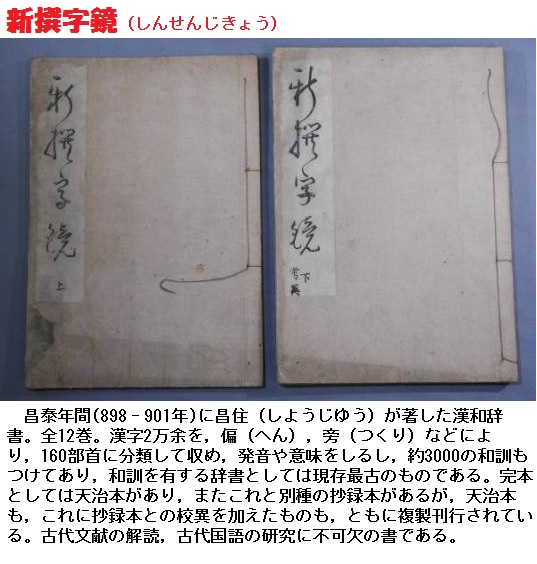 新撰字鏡(しんせんじきょう)
新撰字鏡
上
新撰字鏡
下
昌泰年間(898‐901年)に昌住（しようじゆう）が著した漢和辞
書。全12巻。漢字2万余を，偏（へん），旁（つくり）などによ
り，160部首に分類して収め，発音や意味をしるし，約3000の和訓も
つけてあり，和訓を有する辞書としては現存最古のものである。完本
としては天治本があり，またこれと別種の抄録本があるが，天治本
も，これに抄録本との校異を加えたものも，ともに複製刊行されてい
る。古代文献の解読，古代国語の研究に不可欠の書である。